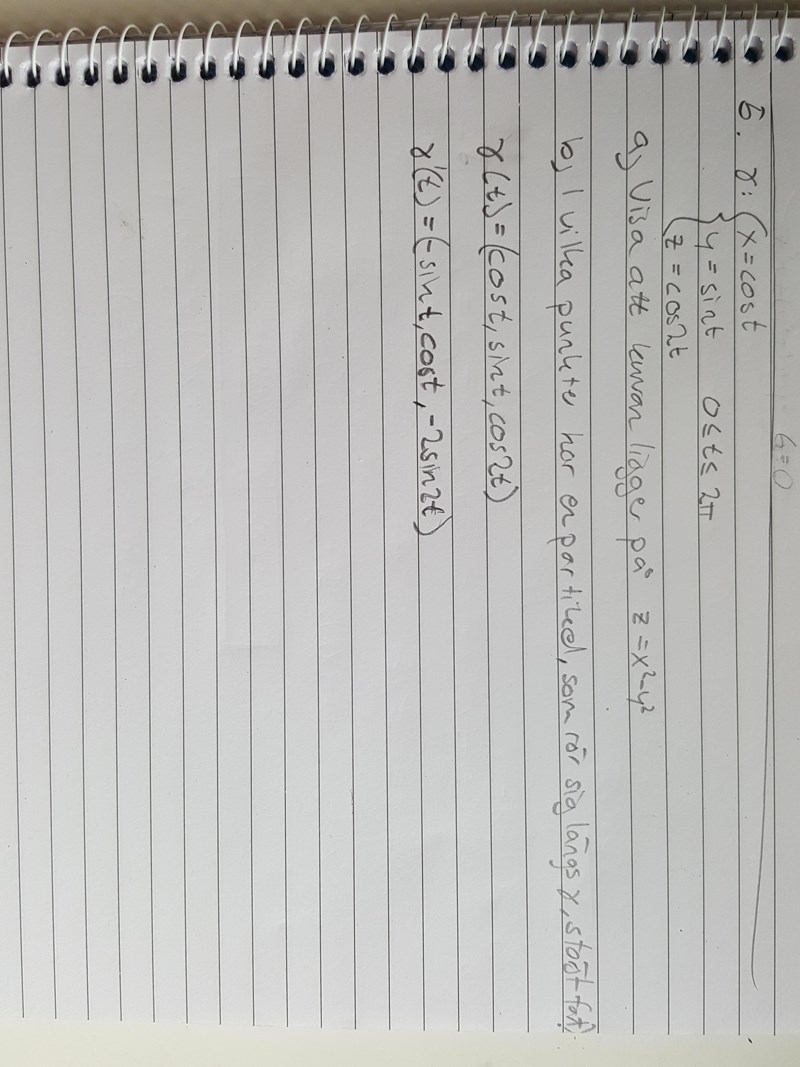 G=0
6. γ: { x=cost
y=sint 0≤t≤2π
z=cos2t
a) Visa att kurvan ligger på z=x²-y²
b) I vilka punkter har en partikel, som rör sig längs γ, störst fart?
γ(t)=(cost, sint, cos2t)
γ'(t)=(-sint, cost, -2sin2t)